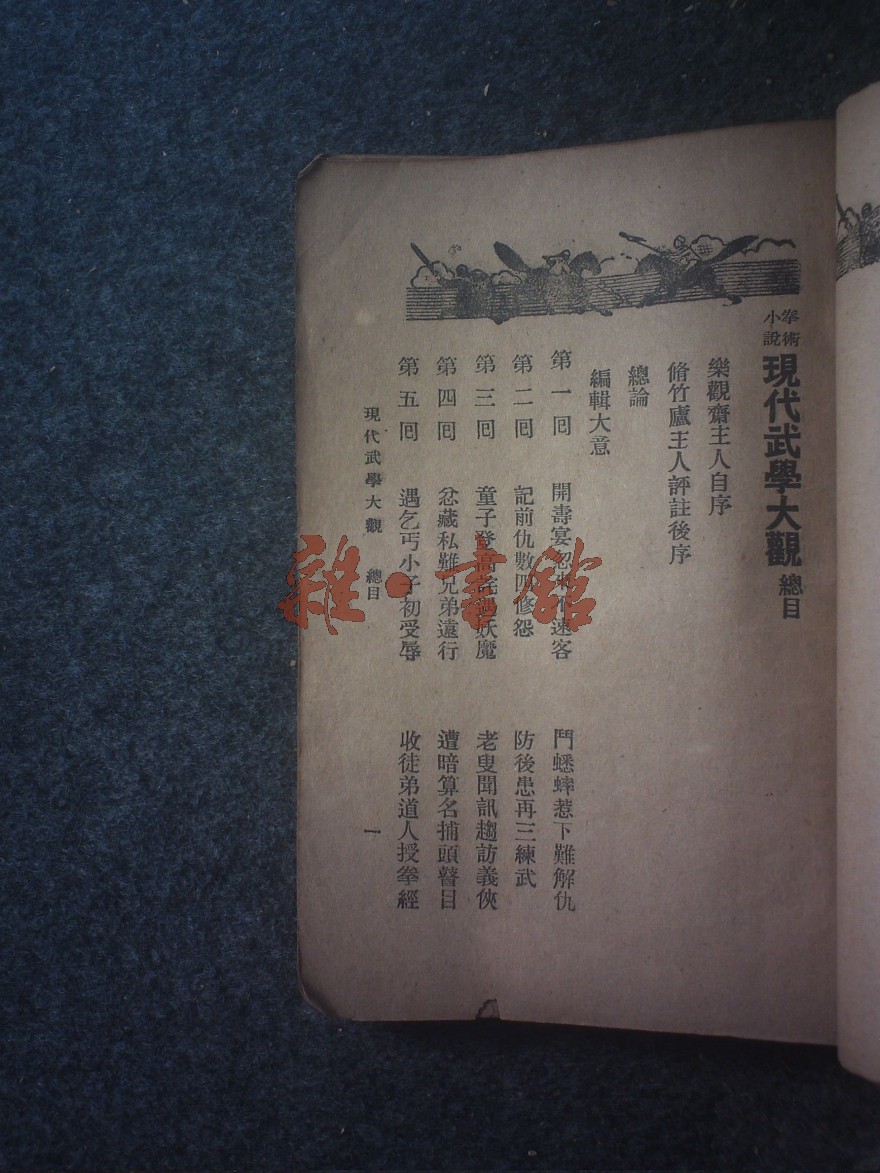 拳術小說 現代武學大觀 總目
樂觀齋主人自序
脩竹廬主人評註後序
總論
編輯大意
第一回 開壽宴忽來不速客 鬥蟋蟀惹下難解仇
第二回 記前仇數四修怨 防後患再三練武
第三回 童子登高詫遇妖魔 老叟聞訊趨訪義俠
第四回 忿藏私難兄弟遠行 遭暗算名捕頭瞽目
第五回 遇乞丐小子初受辱 收徒弟道人授拳經
現代武學大觀 總目 一
雜·書館